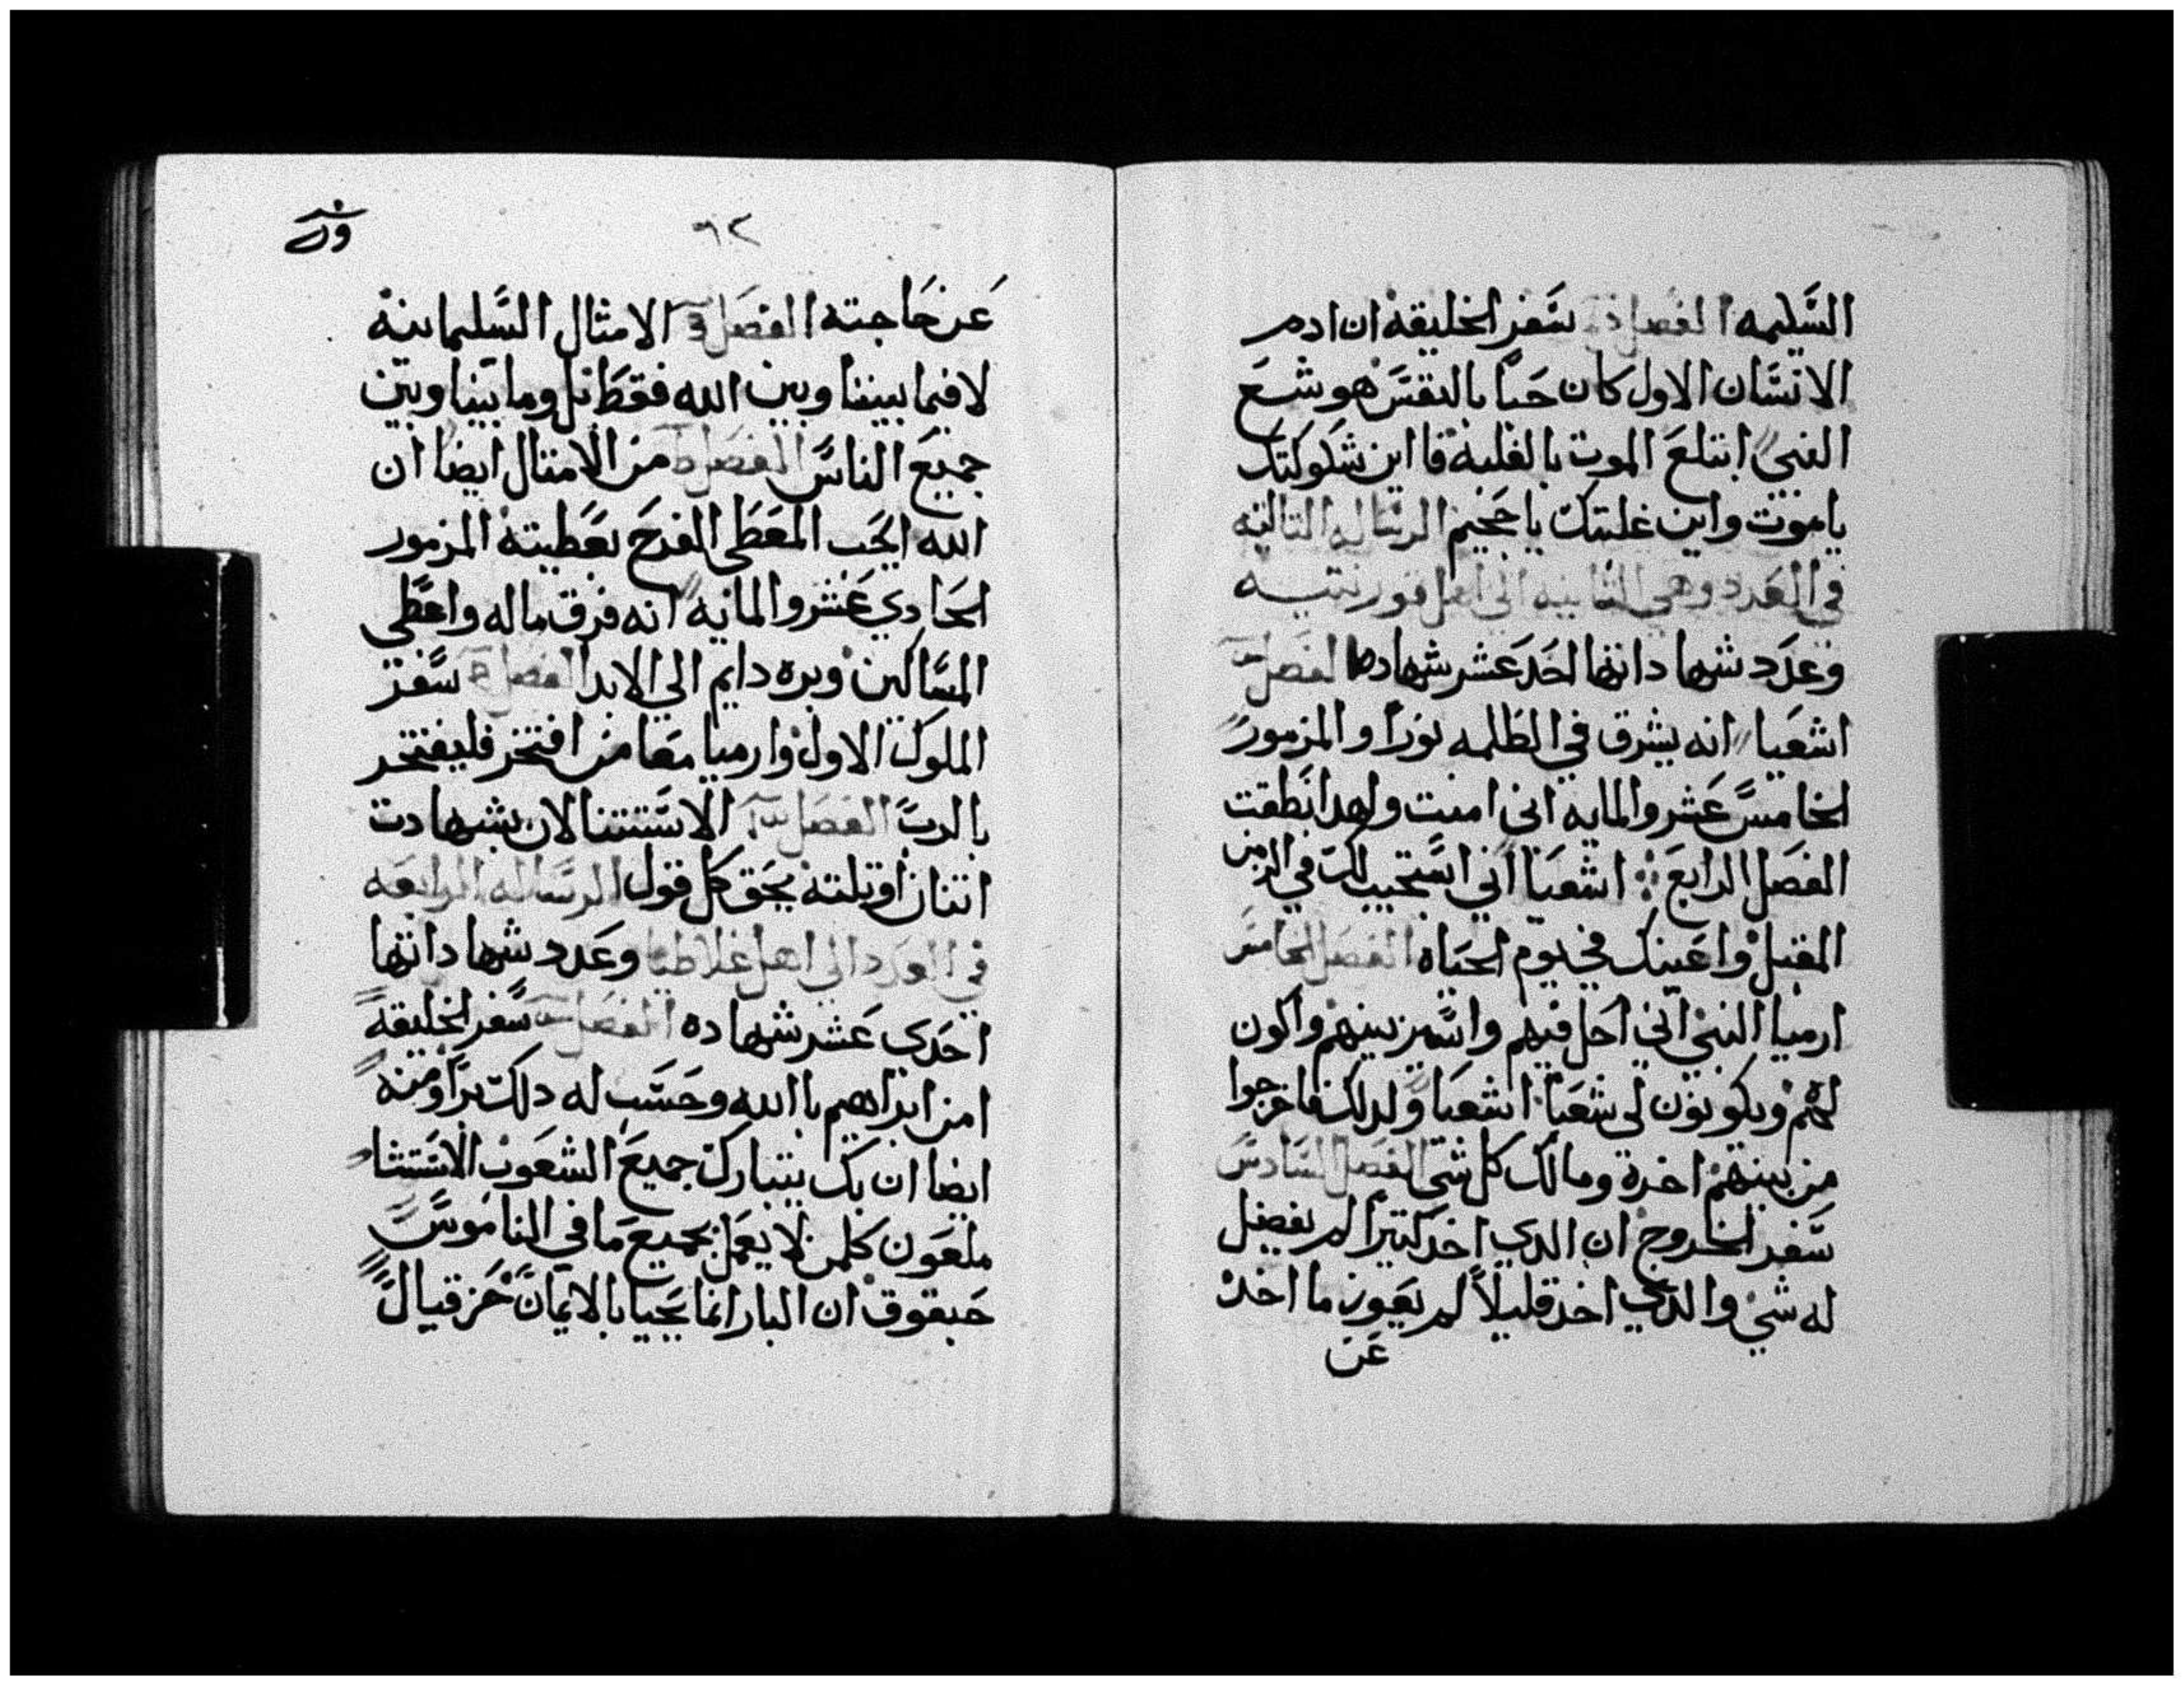 السليمه الفصل سفر الخليقه ان ادم
الانسان الاول كان حيا بالنفس هوشع
النبي ابتلع الموت بالغلبة فااين شكوكتك
ياموت واين غلبتك ياجحيم الرساله التالته
في العدد وهي التانيه الي اهل قورنتيه
وعدد شهاداتها احد عشر شهاده الفصل
اشعيا انه يشرق في الظلمه نورا والمزمور
الخامس عشر والمايه اني امنت ولهدا نطقت
الفصل الرابع اشعيا اني استجيب لك في الزمن
المقبل واعينك في يوم الحياه الفصل الخامس
ارميا النبي اني احل فيهم واسير بينهم واكون
لهم ويكونون لي شعبا اشعيا ولدلك فاخرجوا
من بينهم اخرة ومالك كل شي الفصل السادس
سفر الخروج ان الدي اخد كتيرا لم يفضل
له شي والدي اخد قليلا لم يعوز ما اخد
عن
٦٢
عن حاجته الفصل الامثال السليمانية
لا فيما بيننا وبين الله فقط بل وما بيننا وبين
جميع الناس الفصل من الامتال ايضا ان
الله يحب المعطي الفرح بعطيته المزمور
الحادي عشر والمايه انه فرق ماله واعطي
المساكين وبره دايم الي الابد الفصل سفر
الملوك الاول وارميا معا من افتخر فليفتخر
بالرب الفصل الاستتنا الان بشهادت
اتنان اوتلتة يحق كل قول الرساله الرابعه
في العدد الي اهل غلاطيا وعدد شهاداتها
احدي عشر شهاده الفصل سفر الخليقة
امن ابراهيم باالله وحسب له دلك برا ومنه
ايضا ان بك يتبارك جميع الشعوب الاستثنا
ملعون كلمن لا يعمل بجميع ما في الناموس
حبقوق ان البار انما يحيا بالايمان حزقيال